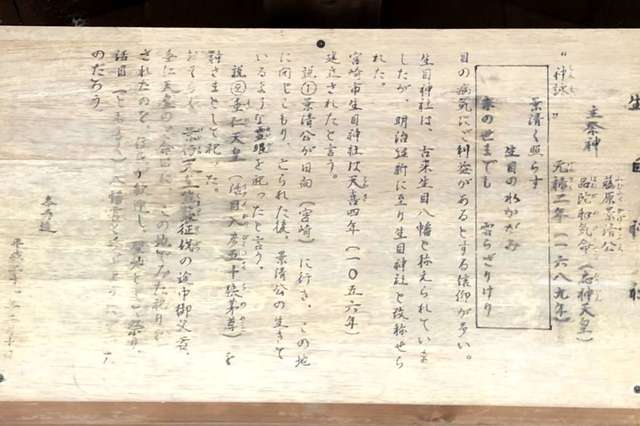 生目神社
主祭神 藤原景清公
品陀和気命（応神天皇）
"神詠" 元禄二年（一六八九年）
景清く照らす
生目の水かがみ
末の世までも 雲らざりけり
目の病気に御利益があるとする信仰が多い。
生目神社は、古来生目八幡と称えられていま
したが、明治維新に至り生目神社と改称せら
れた。
宮崎市生目神社は天喜四年（一〇五六年）
建立されたと言う。
説①景清公が日向（宮崎）に行き、この地
に閉じこもり、とられた後、景清公の生きて
いるような霊眼を祀ったと言う。
説②垂仁天皇（活目入彦五十狭茅尊）を
神さまとして祀った。
景行天皇熊襲征伐の途中御父君、
垂仁天皇の
されたのを、住民が歓迎し、聖地として祭り
活目
のだろう